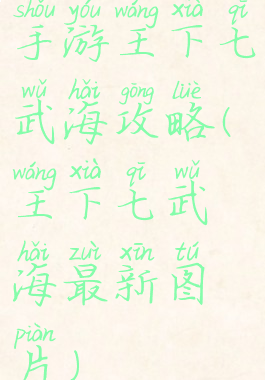 shǒu yóu wáng xià qī
手游王下七
wǔ hǎi gōng lüè
武海攻略(
wáng xià qī wǔ
王下七武
hǎi zuì xīn tú
海最新图
piàn
片)